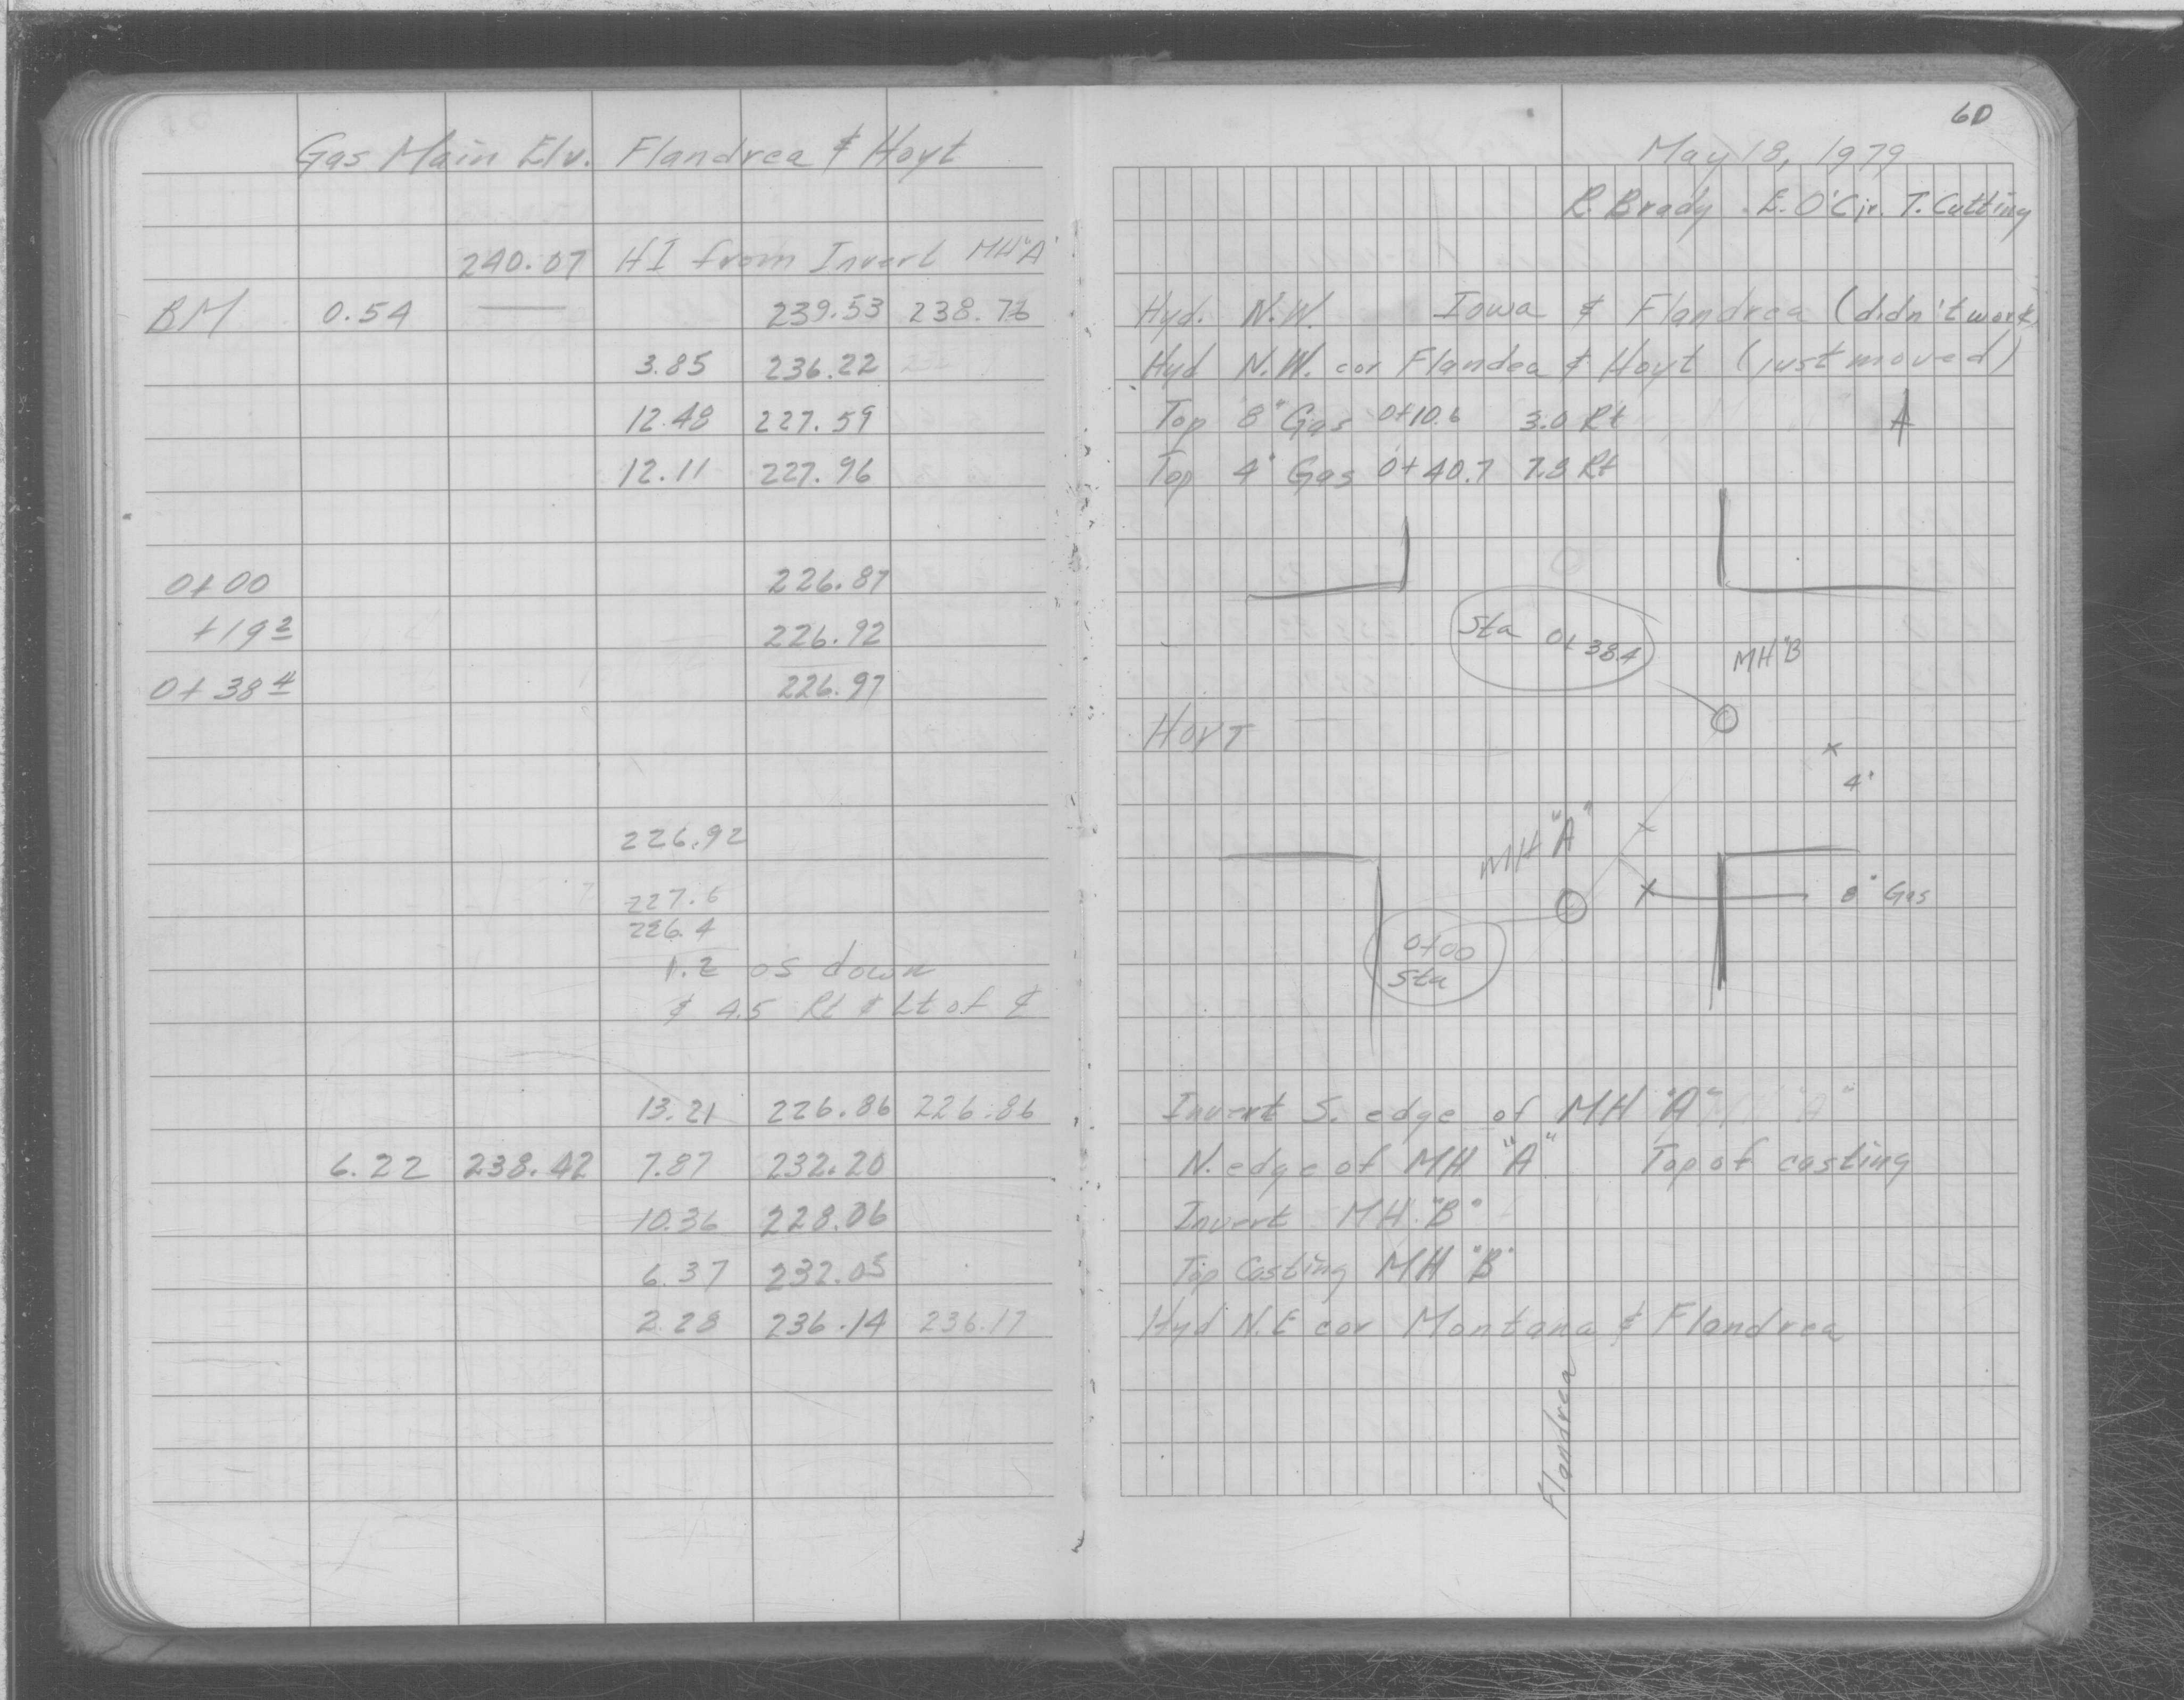 Gas Main Elv. Flandrea & Hoyt
240.07 HI from Invert MH "A"
BM 0.54 — 239.53 238.76
3.85 236.22
12.48 227.59
12.11 227.96
0+00 226.87
+19 2 226.92
0+38 4 226.97
226.92
227.6
226.4
1.2 os down
& 4.5 Rt & Lt of ¢
13.21 226.86 226.86
6.22 238.42 7.87 232.20
10.36 228.06
6.37 232.05
2.28 236.14 236.17
60
May 18, 1979
R. Brady . E. O'C jr. T. Cutting
Hyd. N.W. Iowa & Flandrea (didn't work)
Hyd N.W. cor Flandea & Hoyt (just moved)
Top 8" Gas 0+10.6 3.0 Rt
Top 4" Gas 0+40.7 7.8 Rt
Sta 0+38.4
MH "B"
Hoyt
4"
MH "A"
8" Gas
0+00
Sta
Invert S. edge of MH "A"
N. edge of MH "A" Top of casting
Invert MH "B"
Top Casting MH "B"
Hyd N.E cor Montana & Flandrea
Flandrea